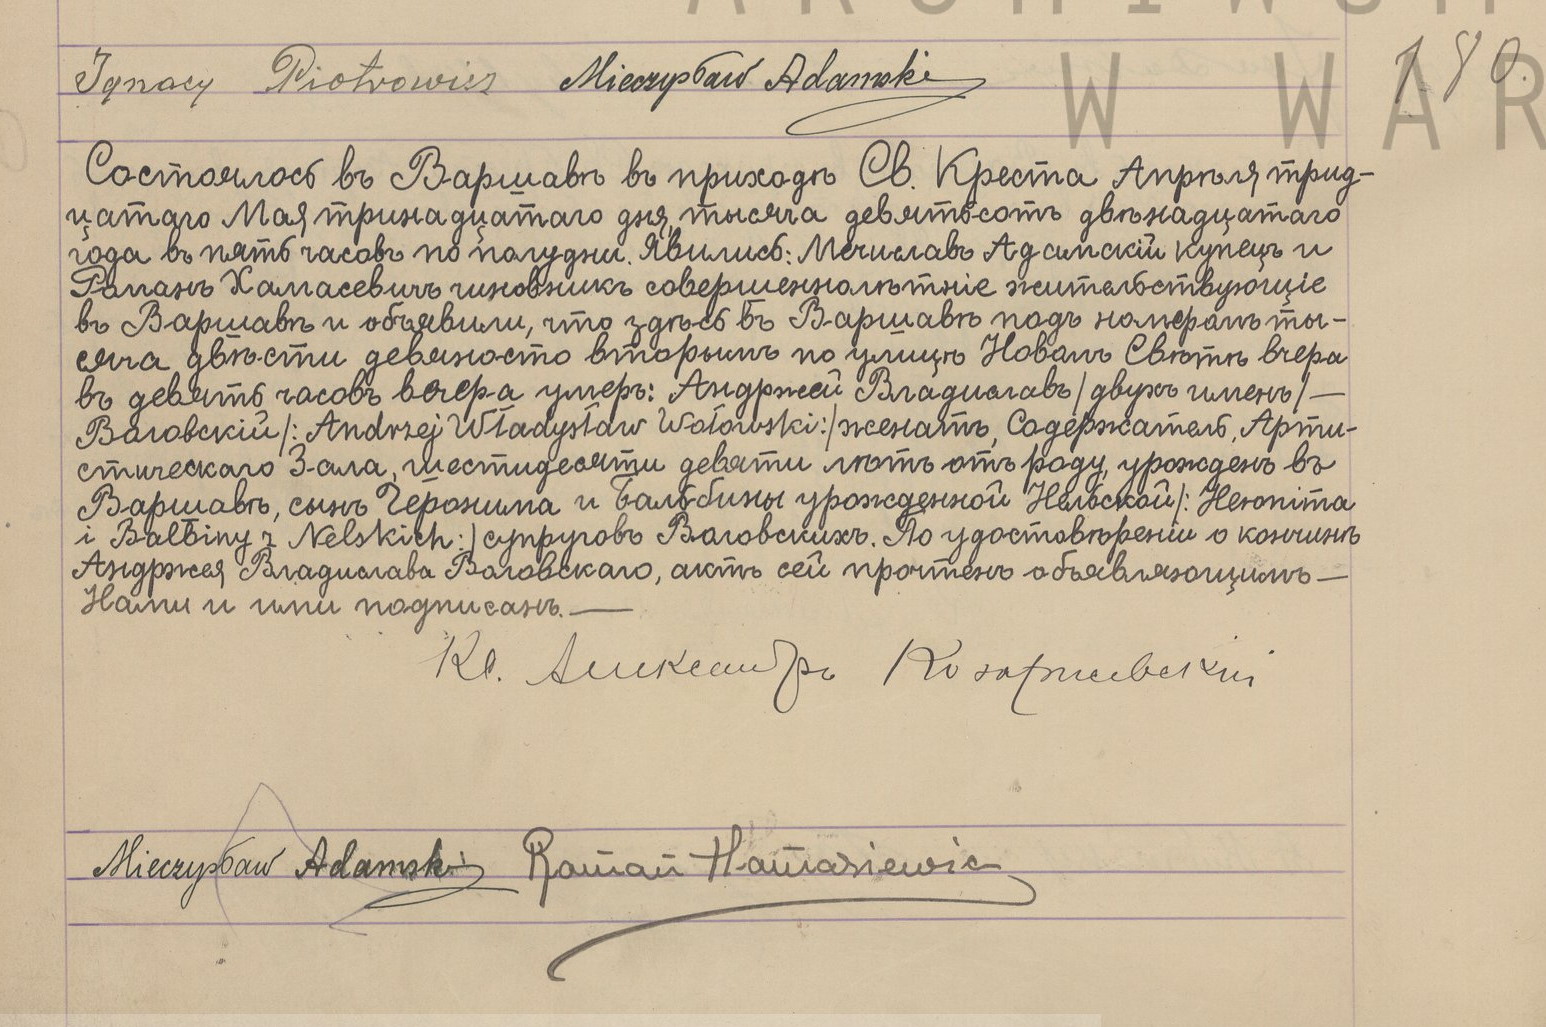 ARCHIWUM
W WAR
180.
Ignacy Piotrowicz Mieczysław Adamski
Состоялось въ Варшавѣ въ приходѣ Св. Креста Апрѣля трид-
цатаго Мая тринадцатаго дня, тысяча девятьсотъ двѣнадцатаго
года въ пять часовъ по полудни. Явились: Мечиславъ Адамскій купецъ и
Романъ Хамасевичъ чиновникъ совершеннолѣтніе жительствующіе
въ Варшавѣ и объявили, что здѣсь въ Варшавѣ подъ номеромъ ты-
сяча двѣсти девяносто вторымъ по улицѣ Новомъ Свѣтѣ вчера
въ девять часовъ вечера умеръ: Анджей Владиславъ /двухъ именъ/ —
Воловскій /: Andrzej Władysław Wołowski :/ женатъ, Содержатель, Арти-
стическаго Зала, шестидесяти девяти лѣтъ отъ роду, урожденъ въ
Варшавѣ, сынъ Геронима и Бальбины урожденной Нельской /: Heronima
i Balbiny z Nelskich :/ супруговъ Воловскихъ. По удостовѣреніи о кончинѣ
Анджея Владислава Воловскаго, актъ сей прочтенъ объявляющимъ —
Нами и ими подписанъ. —
Кс. Александръ
Mieczysław Adamski Roman Hamasiewicz